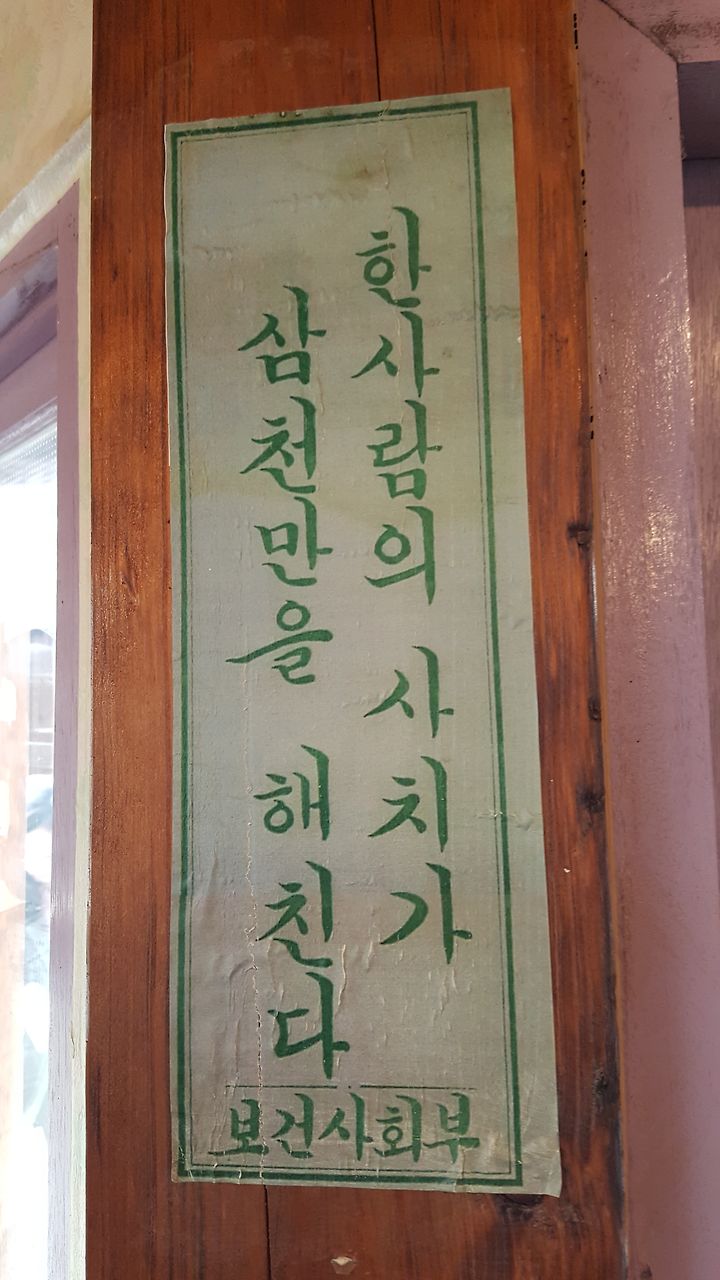 한사람의 사치가
삼천만을 해친다
보건사회부